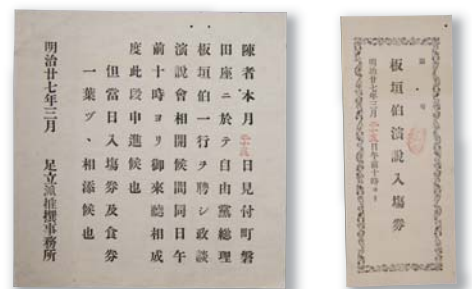 陳者本月二十五日見付町磐
田座ニ於テ自由黨総理
板垣伯一行ヲ聘シ政談
演説會相開候間同日午
前十時ヨリ御来聴相成
度此段申進候也
但當日入塲券及食券
一葉ヅヽ相添候也
明治廿七年三月
足立派推撰事務所
第 号
板垣伯演説入塲券
明治廿七年三月二十五日午前十時ヨリ